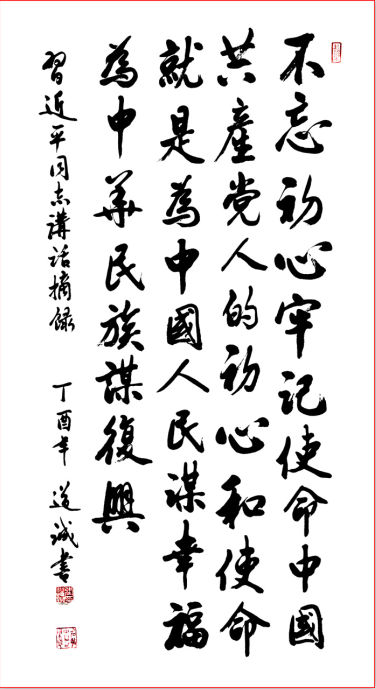 不忘初心牢记使命中國
共產党人的初心和使命
就是為中國人民謀幸福
為中華民族謀復興
習近平同志講话摘錄 丁酉年 道诚書